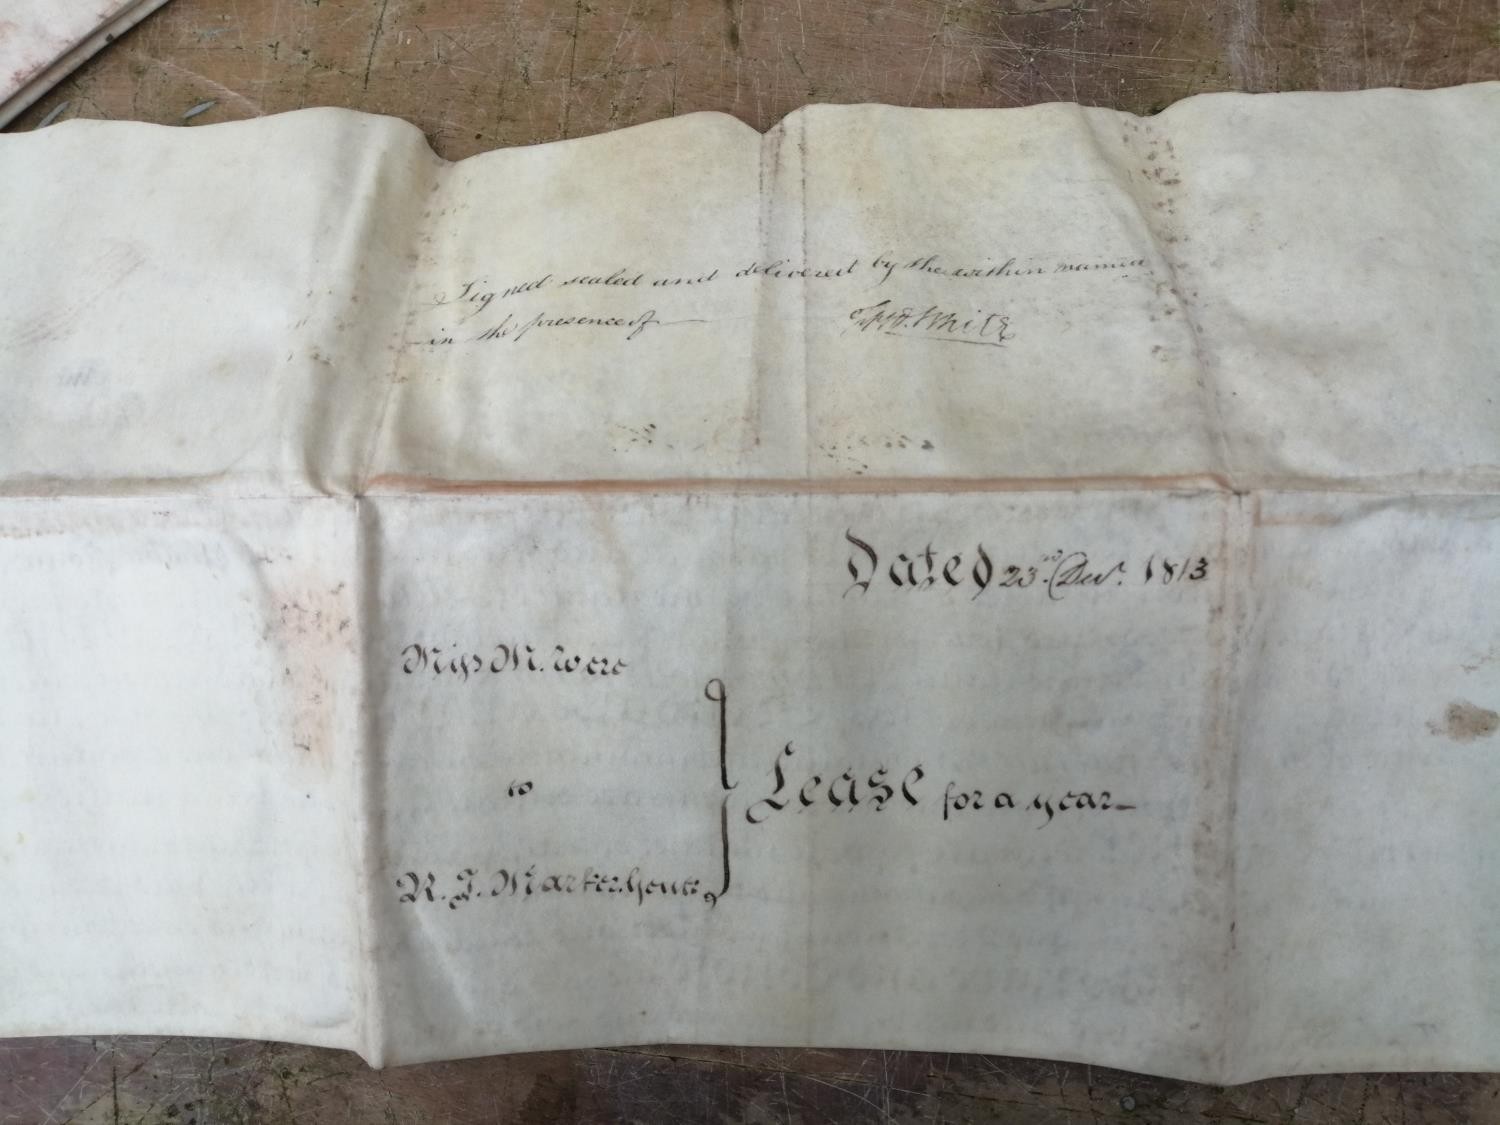 Signed sealed and delivered by the within named
in the presence of White
Dated 23rd Decr. 1813
Miss M. Were
to
R. J. Markerhouse
Lease for a year